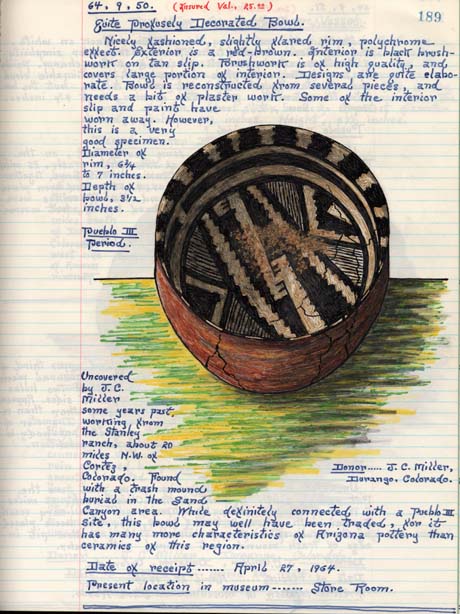 64. 9. 50. (Insured Val., 25.00)
189
Quite Profusely Decorated Bowl.
Nicely fashioned, slightly flared rim, polychrome
effect. Exterior is a red-brown. Interior is black brush-
work on tan slip. Brushwork is of high quality, and
covers large portion of interior. Designs are quite elabo-
rate. Bowl is reconstructed from several pieces, and
needs a bit of plaster work. Some of the interior
slip and paint have
worn away. However,
this is a very
good specimen.
Diameter of
rim, 6 3/4
to 7 inches.
Depth of
bowl, 3 1/2
inches.
Pueblo III
Period.
Uncovered
by J. C.
Miller
some years past
working from
the Stanley
ranch, about 20
miles N.W. of
Cortez,
Colorado. Found
with a trash mound
burial in the Sand
Canyon area. While definitely connected with a Pueblo III
site, this bowl may well have been traded, for it
has many more characteristics of Arizona pottery than
ceramics of this region.
Donor..... J. C. Miller,
Durango, Colorado.
Date of receipt ....... April 27, 1964.
Present location in museum ....... Store Room.